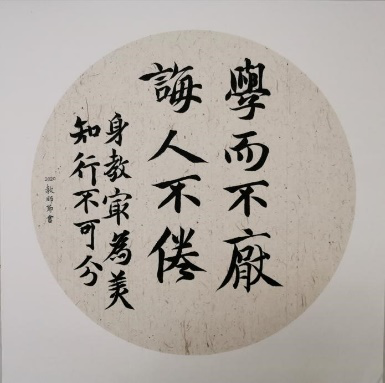 學而不厭
誨人不倦
身教寂為美
知行不可分
2020
教師節書